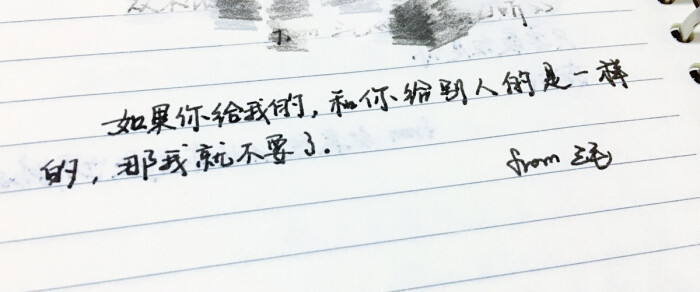 如果你给我的,和你给别人的是一样
的,那我就不要了.
from 三毛